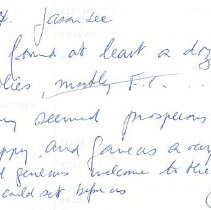 Jason Lee
found at least a doz
lies, mostly F.T. ...
ey seemed prosperous
ppy, and gave us a
d generous welcome to the
could set before us